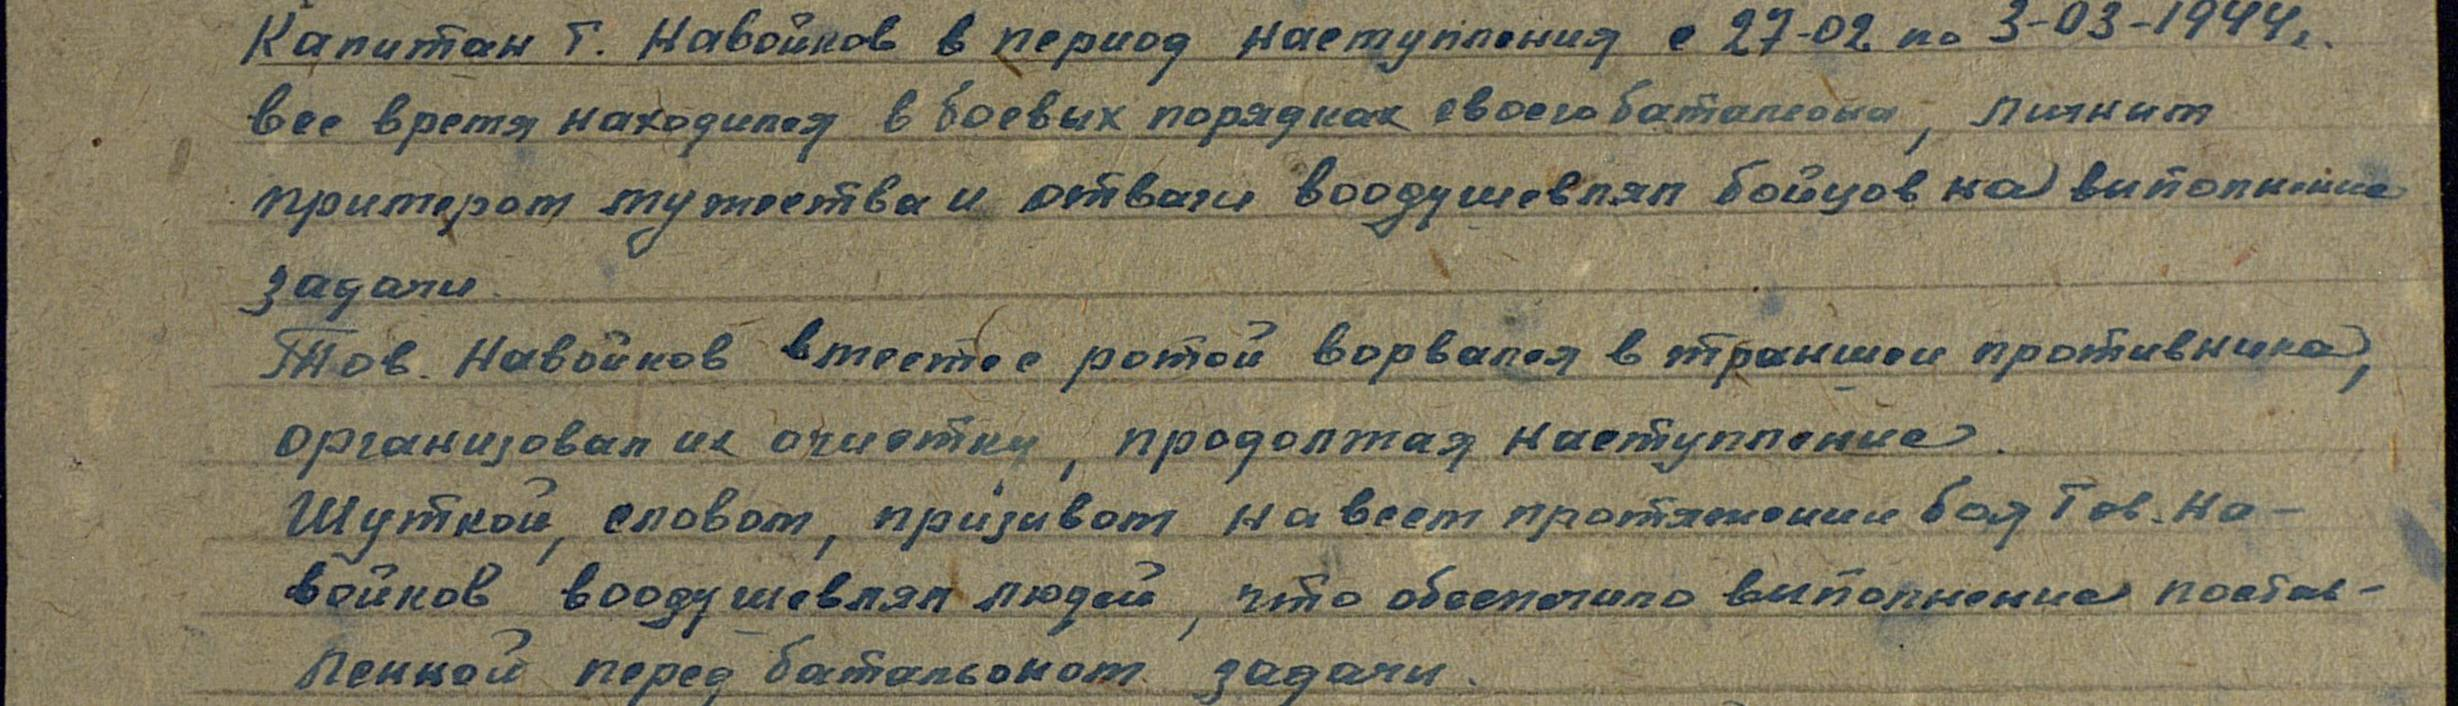 Капитан т. Навойков в период наступления с 27-02 по 3-03-1944г.
все время находился в боевых порядках своего батальона, личним
примером мужества и отваги воодушевлял бойцов на виполнение
задачи.
Тов. Навойков вместе с ротой ворвался в траншеи противника,
организовал их очистку, продолжая наступление.
Шуткой, словом, призивом на всем протяжении боя Тов. На-
войков воодушевлял людей, что обеспечило виполнение постав-
ленной перед батальоном задачи.